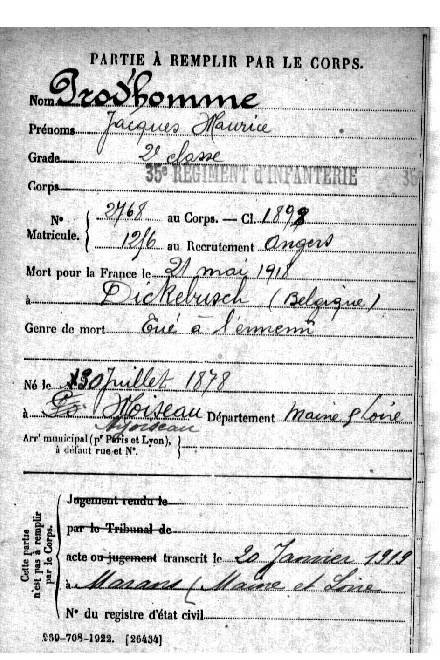 PARTIE À REMPLIR PAR LE CORPS.
Nom Prod'homme
Prénoms Jacques Maurice
Grade 2e classe
Corps 35e RÉGIMENT d'INFANTERIE 35
N° Matricule. { 2768 au Corps. — Cl. 1898
1256 au Recrutement Angers
Mort pour la France le 21 mai 1918
à Dickebusch (Belgique)
Genre de mort Tué à l'ennemi
Né le 30 Juillet 1878
à Noiseau Département Maine & Loire
Noyseau
Arrt municipal (pr Paris et Lyon), à défaut rue et N°. }
Cette partie n'est pas à remplir par le Corps.
Jugement rendu le
par le Tribunal de
acte ou jugement transcrit le 20 Janvier 1919
à Marans (Maine et Loire
N° du registre d'état civil
239-708-1922. [26434]